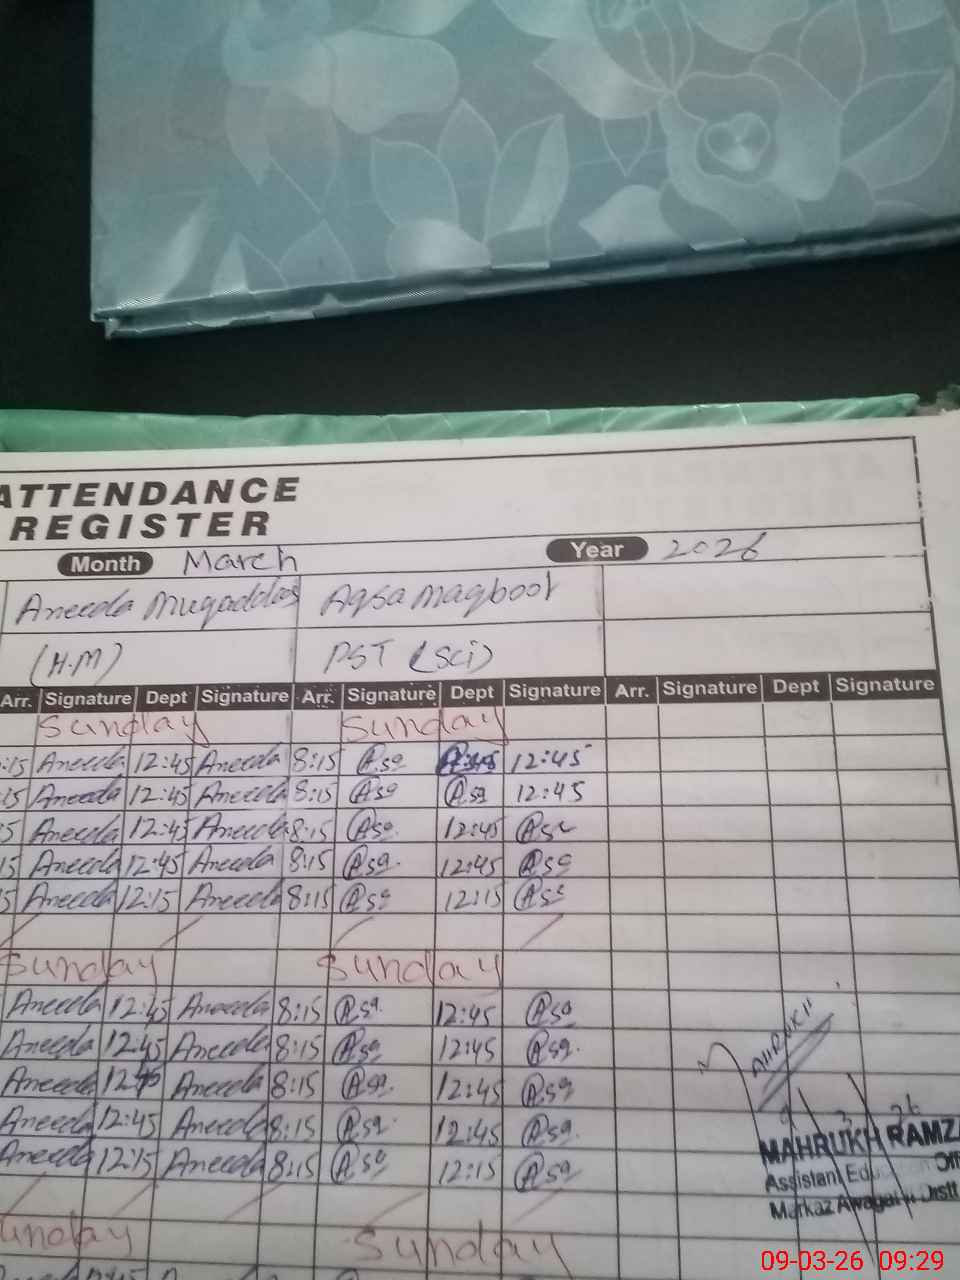 ATTENDANCE
REGISTER
Month March Year 2026
Aneeda Muqaddas Aqsa maqbool
(H.M) PST (Sci)
Arr. Signature Dept Signature Arr. Signature Dept Signature Arr. Signature Dept Signature
Sunday Sunday
:15 Aneeda 12:45 Aneeda 8:15 Asq 12:45
15 Aneeda 12:45 Aneeda 8:15 Asq Asq 12:45
5 Aneeda 12:45 Aneeda 8:15 Asq. 12:45 Asq
15 Aneeda 12:45 Aneeda 8:15 Asq. 12:45 Asq
5 Aneeda 12:15 Aneeda 8:15 Asq 12:15 Asq
Sunday Sunday
Aneeda 12:45 Aneeda 8:15 Asq. 12:45 Asq
Aneeda 12:45 Aneeda 8:15 Asq 12:45 Asq.
Aneeda 12:45 Aneeda 8:15 Asq. 12:45 Asq
Aneeda 12:45 Aneeda 8:15 Asq. 12:45 Asq.
Aneeda 12:15 Aneeda 8:15 Asq 12:15 Asq
Sunday Sunday
9 3 26
MAHRUKH RAMZA
Assistant Edu Off
Markaz Distt
09-03-26 09:29